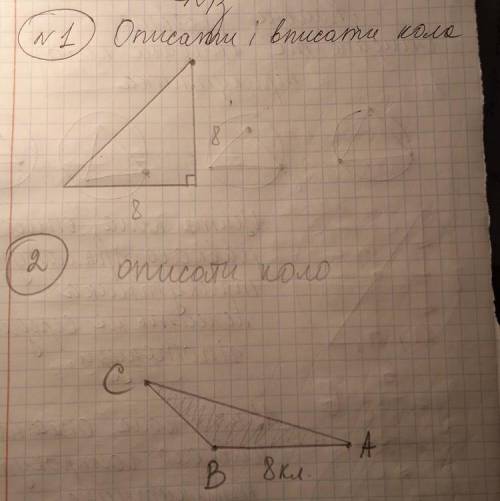 №1 Описати і вписати кола
8
8
2 описати коло
C
A
B 8кл.